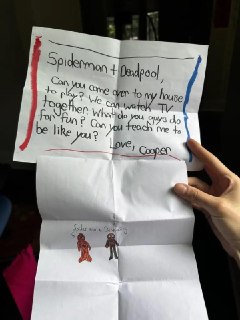 Spiderman + Deadpool,
Can you come over to my house
to play? We can watch TV
together. What do you guys do
for fun? Can you teach me to
be like you?
Love, Cooper